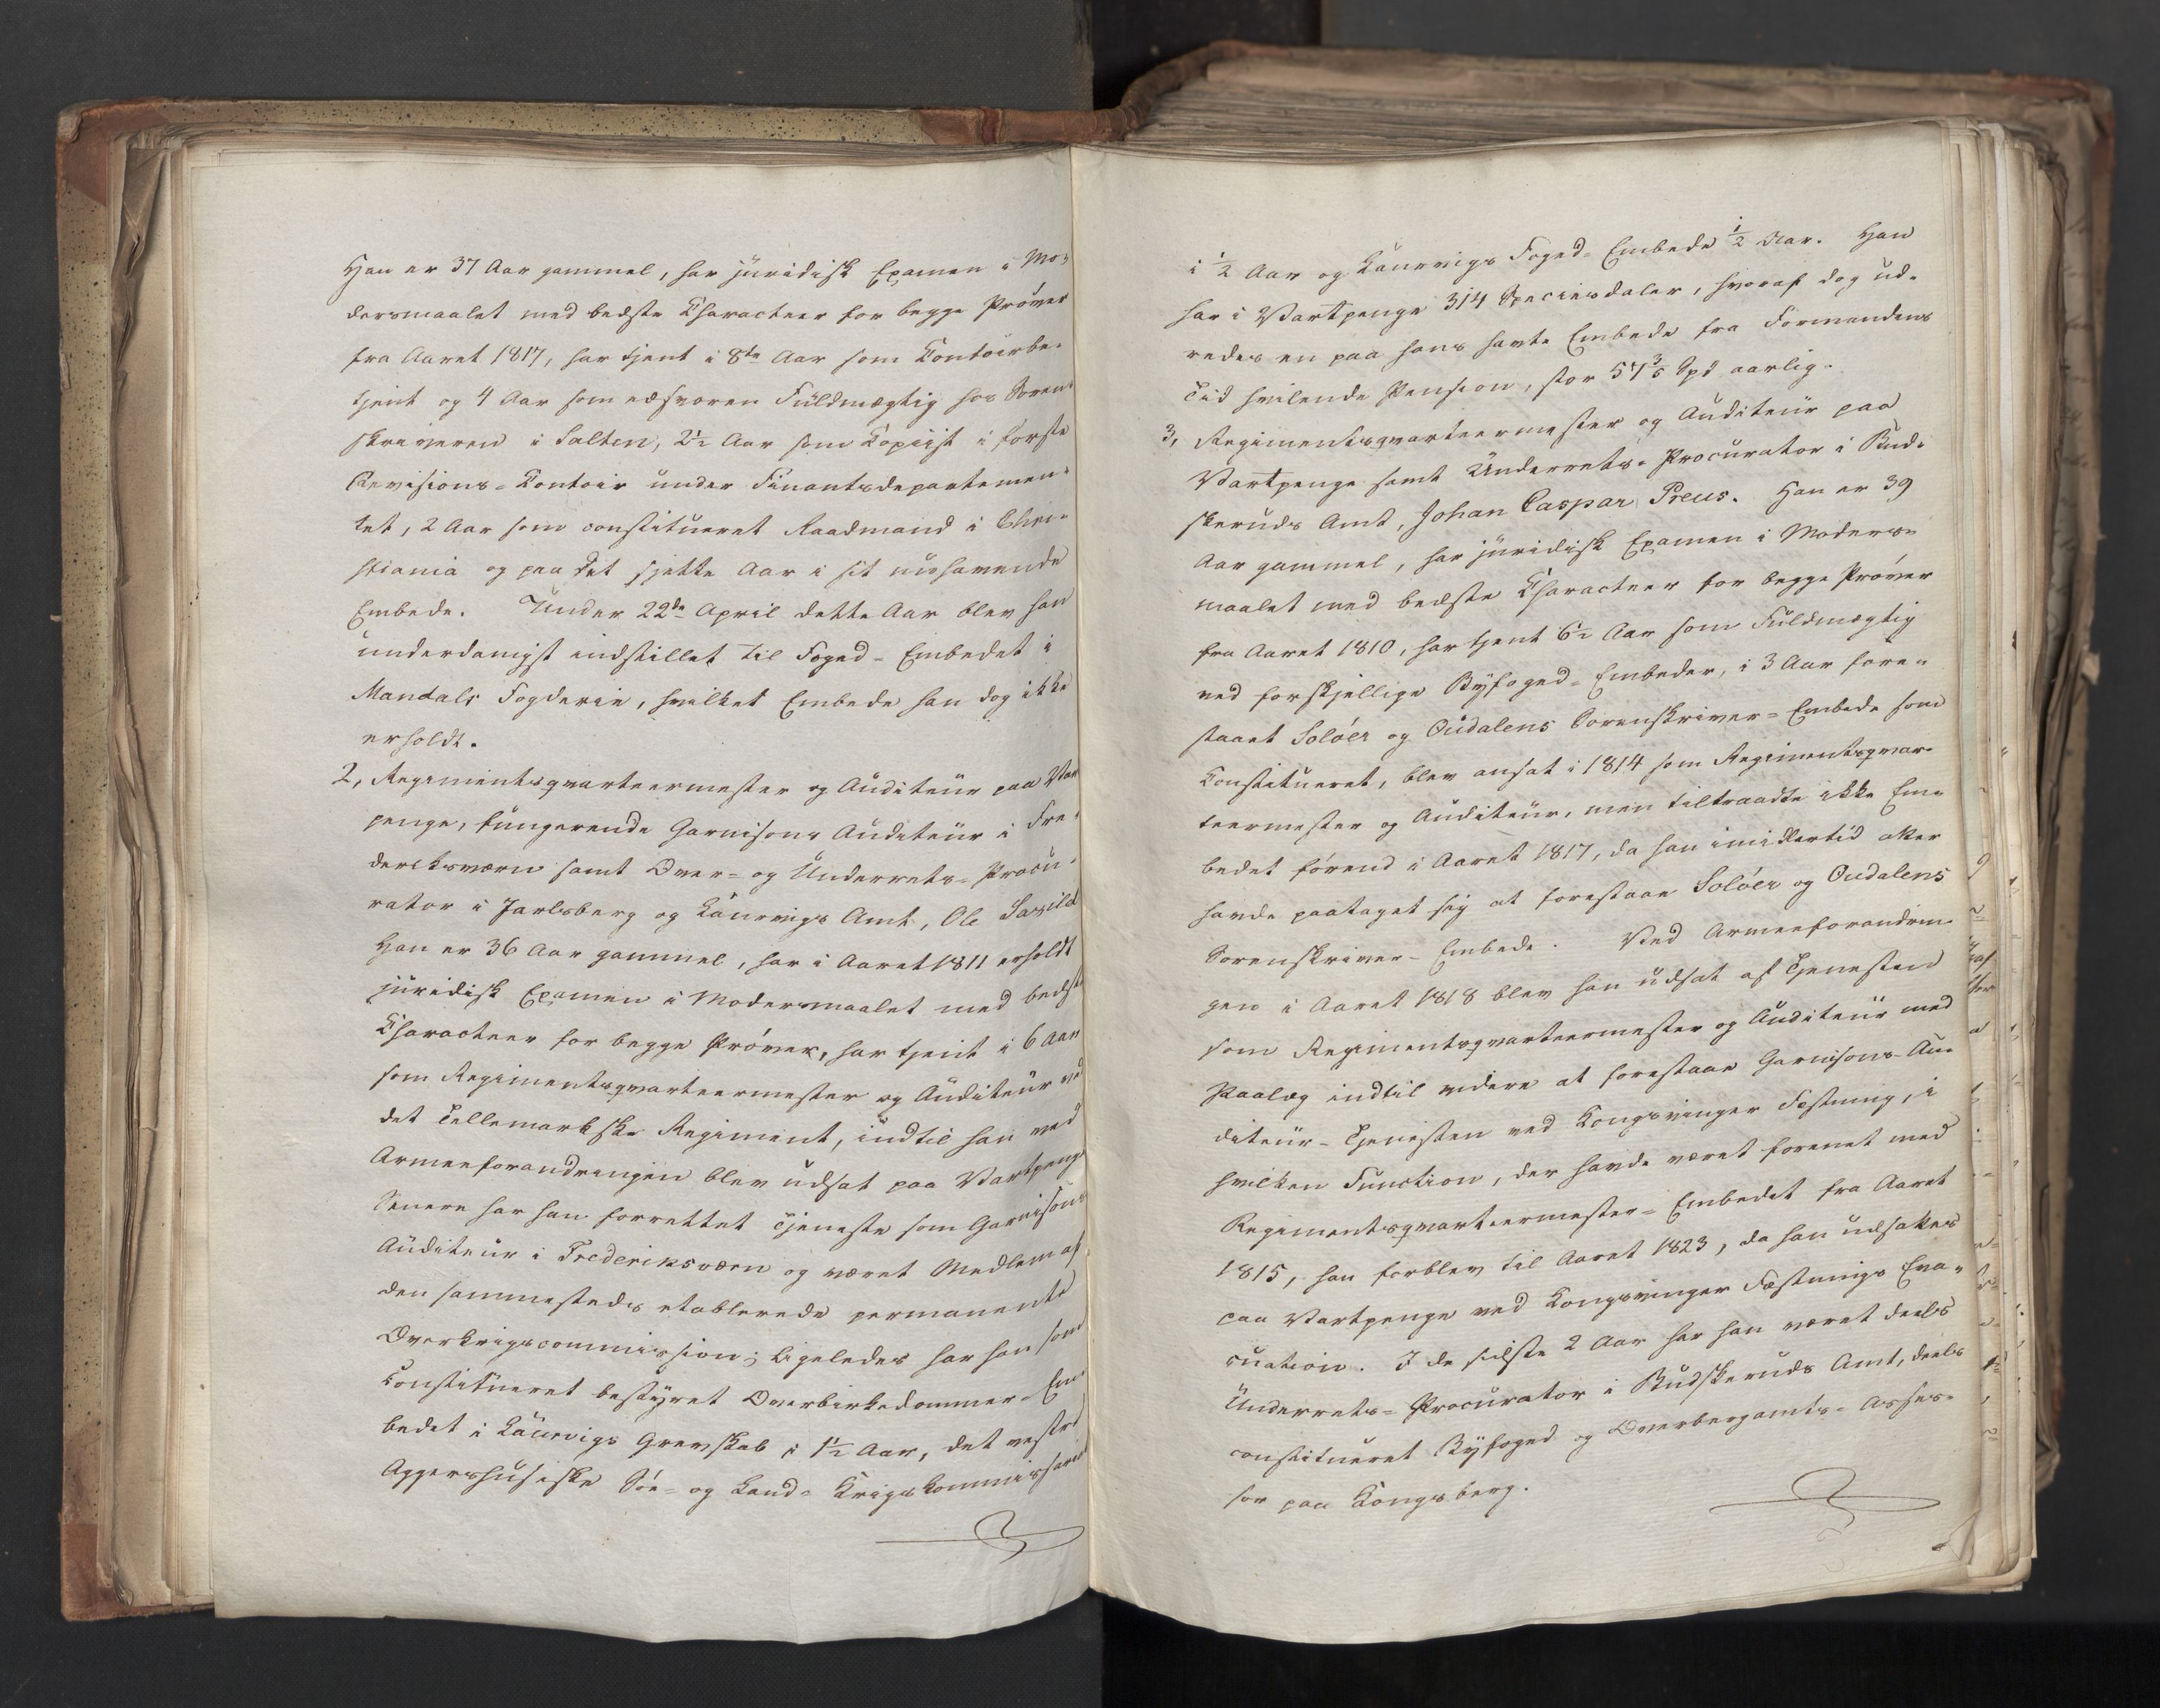 Han er 37 Aar gammel, har juridisk Examen i Mo-
dersmaalet med bedste Characteer for begge Prøver
fra Aaret 1817, har tjent i 8te Aar som Contoirbe-
tjent og 4 Aar som edsvoren Fuldmægtig hos Soren-
skriveren i Salten, 2½ Aar som Copiist i første
Revisions-Contoir under Finantsdepartemen-
tet, 2 Aar som constitueret Raadmand i Chri-
stiania og paa det sjette Aar i sit nuhavende
Embede. Under 22de April dette Aar blev han
underdanigst indstillet til Foged-Embedet i
Mandals Fogderie, hvilket Embede han dog ikke
erholdt.
2, Regimentsqvarteermester og Auditeur paa Vart
penge, fungerende Garnisons Auditeur i Fre-
deriksværn samt Over- og Underrets-Procu-
rator i Jarlsberg og Laurvigs Amt, Ole
Han er 36 Aar gammel, har i Aaret 1811 erholdt
juridisk Examen i Modersmaalet med bedste
Characteer for begge Prøver, har tjent i 6 Aar
som Regimentsqvarteermester og Auditeur ved
det Tellemarkske Regiment, indtil han ved
Armeeforandringen blev udsat paa Vartpenge
Senere har han forrettet Tjeneste som Garnisons
Auditeur i Frederiksværn og været Medlem af
den sammesteds etablerede permanente
Overkrigscommission; ligeledes har han som
Constitueret bestyret Overbirkedommer-Em-
bedet i Laurvigs Grevskab i 1½ Aar, det vestre
Aggershusiske Söe- og Land-Krigskommissariat
i ½ Aar og Laurvigs Foged-Embede ½ Aar. Han
har i Vartpenge 314 Speciesdaler, hvoraf dog ud-
redes en paa hans havte Embede fra Formandens
Tid hvilende Pension, stor 57 3/5 Spd aarlig.
3, Regimentsqvarteermester og Auditeur paa
Vartpenge samt Underrets-Procurator i Bud-
skeruds Amt, Johan Caspar Preus. Han er 39
Aar gammel, har juridisk Examen i Moders-
maalet med bedste Characteer for begge Prøver
fra Aaret 1810, har tjent 6½ Aar som Fuldmægtig
ved forskjellige Byfoged-Embeder, i 3 Aar fore-
staaet Solöer og Oudalens Sorenskriver-Embede som
Constitueret, blev ansat i 1814 som Regimentsqvar-
teermester og Auditeur, men tiltraadte ikke Em-
bedet förend i Aaret 1817, da han imidlertid atter
havde paataget sig at forestaae Solöer og Oudalens
Sorenskriver-Embede. Ved Armeeforandrin-
gen i Aaret 1818 blev han udsat af Tjenesten
som Regimentsqvarteermester og Auditeur med
Paalæg indtil videre at forestaae Garnisons-Au-
diteur-Tjenesten ved Kongsvinger Fæstning, i
hvilken Function, der havde været forenet med
Regimentsqvarteermester-Embedet fra Aaret
1815, han forblev til Aaret 1823, da han udsattes
paa Vartpenge ved Kongsvinger Fæstnings Eva-
cuation. I de sidste 2 Aar har han været deels
Underrets-Procurator i Budskeruds Amt, deels
constitueret Byfoged og Overbergamts-Asses-
sor paa Kongsberg.